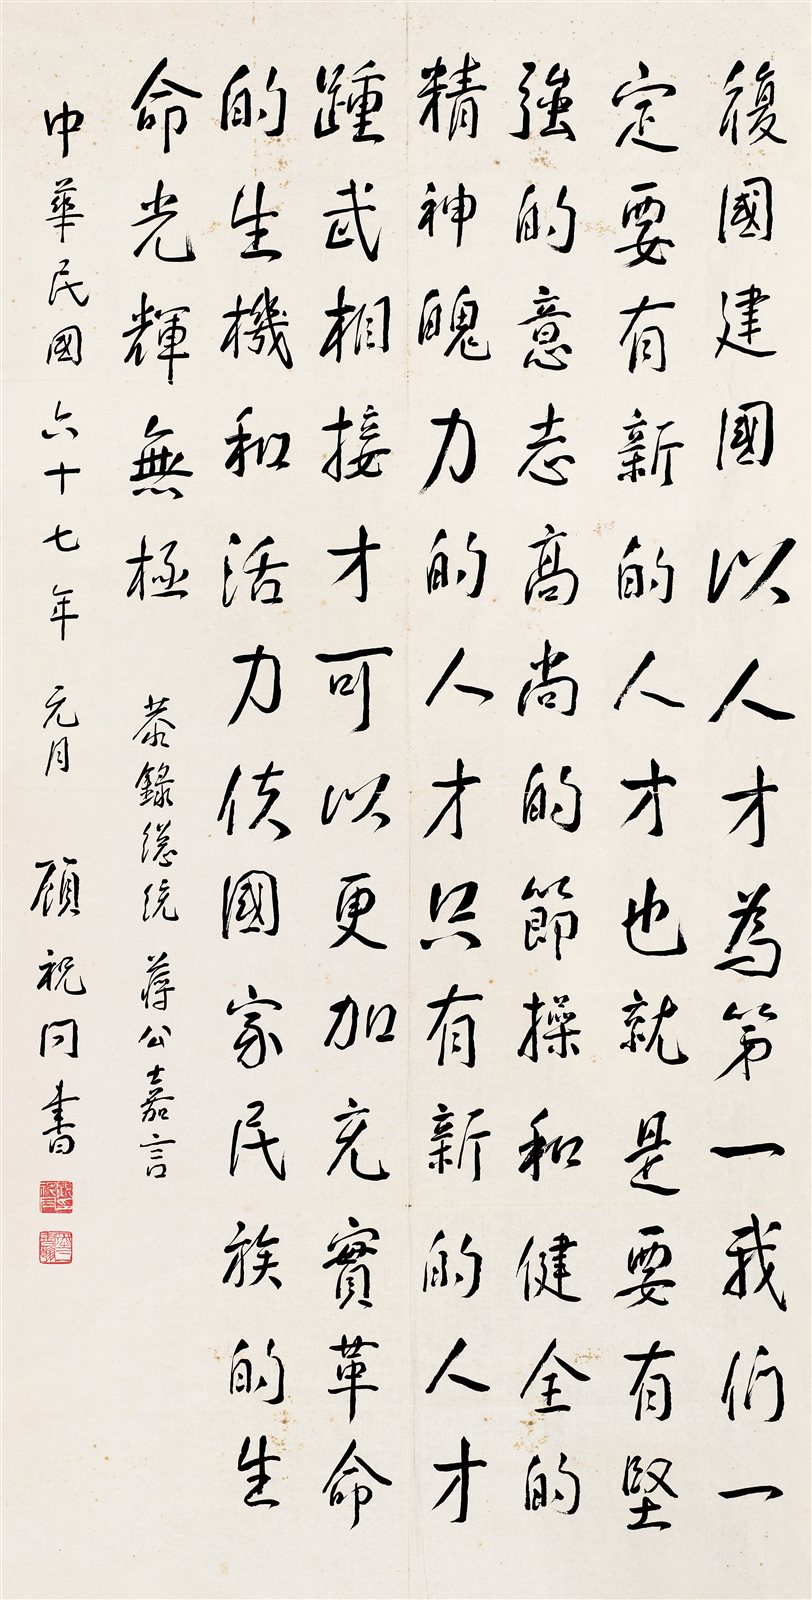 復國建國以人才為第一我們一
定要有新的人才也就是要有堅
強的意志高尚的節操和健全的
精神魄力的人才只有新的人才
踵武相接才可以更加充實革命
的生機和活力使國家民族的生
命光輝無極
恭錄總統蔣公嘉言
中華民國六十七年元月 顧祝同書